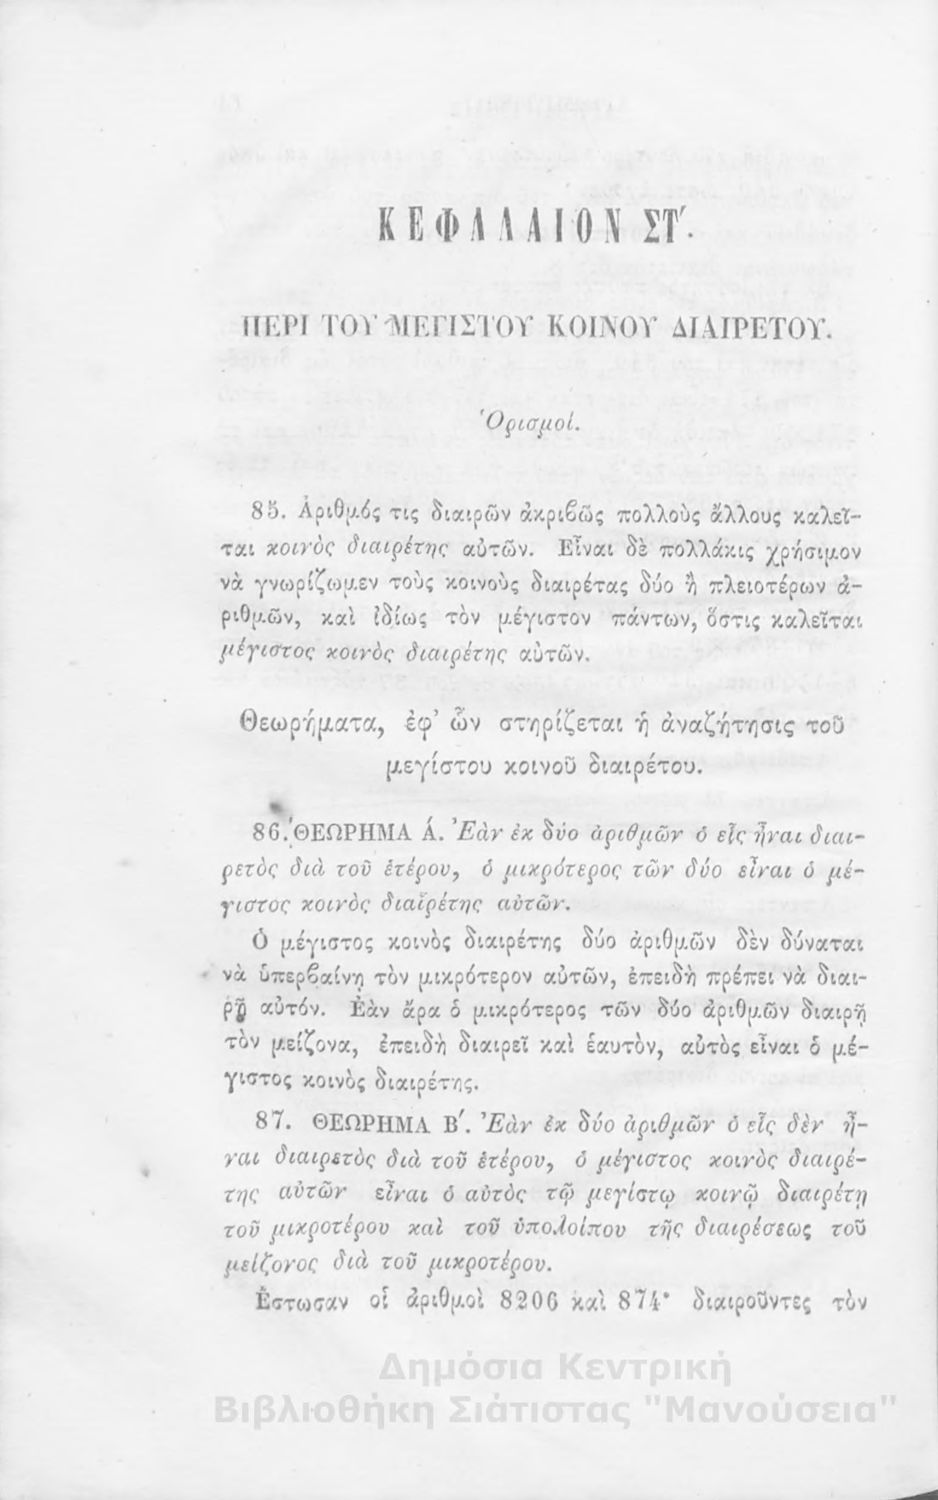 ΚΕΦΑΛΑΙΟΝ ΣΤ΄.
ΠΕΡΙ ΤΟΥ ΜΕΓΙΣΤΟΥ ΚΟΙΝΟΥ ΔΙΑΙΡΕΤΟΥ.
Ὁρισμοί.
85. Ἀριθμός τις διαιρῶν ἀκριβῶς πολλοὺς ἄλλους καλεῖ-
ται κοινὸς διαιρέτης αὐτῶν. Εἶναι δὲ πολλάκις χρήσιμον
νὰ γνωρίζωμεν τοὺς κοινοὺς διαιρέτας δύο ἢ πλειοτέρων ἀ-
ριθμῶν, καὶ ἰδίως τὸν μέγιστον πάντων, ὅστις καλεῖται
μέγιστος κοινὸς διαιρέτης αὐτῶν.
Θεωρήματα, ἐφ’ ὧν στηρίζεται ἡ ἀναζήτησις τοῦ
μεγίστου κοινοῦ διαιρέτου.
86. ΘΕΩΡΗΜΑ Ά. Ἐὰν ἐκ δύο ἀριθμῶν ὁ εἷς ᾖναι διαι-
ρετὸς διὰ τοῦ ἑτέρου, ὁ μικρότερος τῶν δύο εἶναι ὁ μέ-
γιστος κοινὸς διαιρέτης αὐτῶν.
Ὁ μέγιστος κοινὸς διαιρέτης δύο ἀριθμῶν δὲν δύναται
νὰ ὑπερβαίνῃ τὸν μικρότερον αὐτῶν, ἐπειδὴ πρέπει νὰ διαι-
ρῇ αὐτόν. Ἐὰν ἄρα ὁ μικρότερος τῶν δύο ἀριθμῶν διαιρῇ
τὸν μείζονα, ἐπειδὴ διαιρεῖ καὶ ἑαυτὸν, αὐτὸς εἶναι ὁ μέ-
γιστος κοινὸς διαιρέτης.
87. ΘΕΩΡΗΜΑ Β΄. Ἐὰν ἐκ δύο ἀριθμῶν ὁ εἷς δὲν ᾖ-
ναι διαιρετὸς διὰ τοῦ ἑτέρου, ὁ μέγιστος κοινὸς διαιρέ-
της αὐτῶν εἶναι ὁ αὐτὸς τῷ μεγίστῳ κοινῷ διαιρέτῃ
τοῦ μικροτέρου καὶ τοῦ ὑπολοίπου τῆς διαιρέσεως τοῦ
μείζονος διὰ τοῦ μικροτέρου.
Ἔστωσαν οἱ ἀριθμοὶ 8206 καὶ 874· διαιροῦντες τὸν
Δημόσια Κεντρική
Βιβλιοθήκη Σιάτιστας "Μανούσεια"